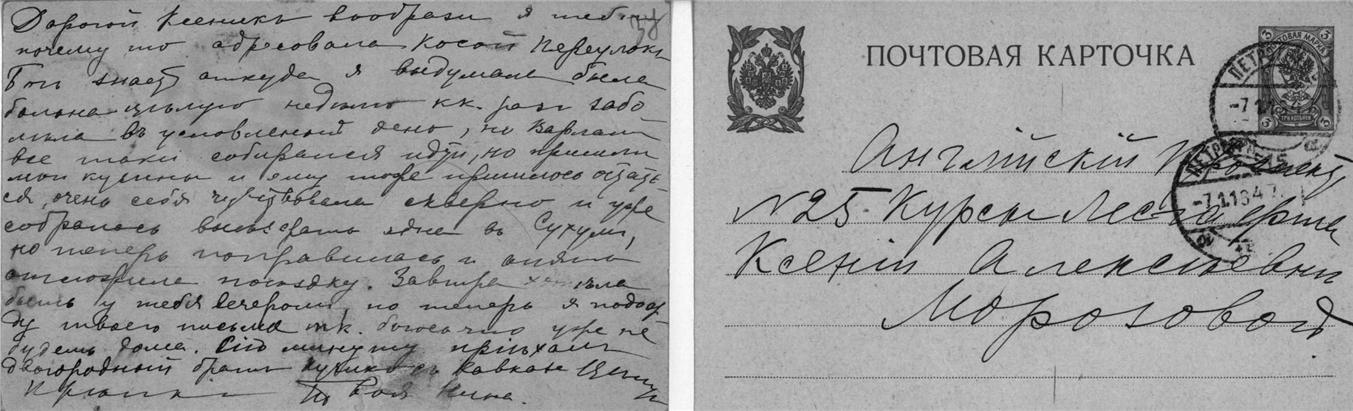 Дорогой Ксеникъ вообрази я тебѣ
почему то адресовала Косой Переулокъ
Богъ знаетъ откуда я выдумала была
больна цѣлую недѣлю кк. разъ забо
лѣла въ условленный день, но Варлам
все таки собирался идти, но пришли
мои кузины и ему тоже пришлось остать
ся, очень себя чувствовала скверно и уже
собралась выѣзжать одна въ Сухумъ,
но теперь поправилась и опять
отложила поѣздку. Завтра хотѣла
быть у тебя вечеромъ но теперь я подож
ду твоего письма тк. боюсь что уже не
будешь дома. Сію минуту пріѣхалъ
двоюродный братъ съ Кавказа
Твоя Нина.
38
ПОЧТОВАЯ КАРТОЧКА
ПОЧТОВАЯ МАРКА
ТРИ КОПѢЙКИ
Англійскій
№25 Курсы Лесгафта
Ксеніи Алексѣевны
Морозовой